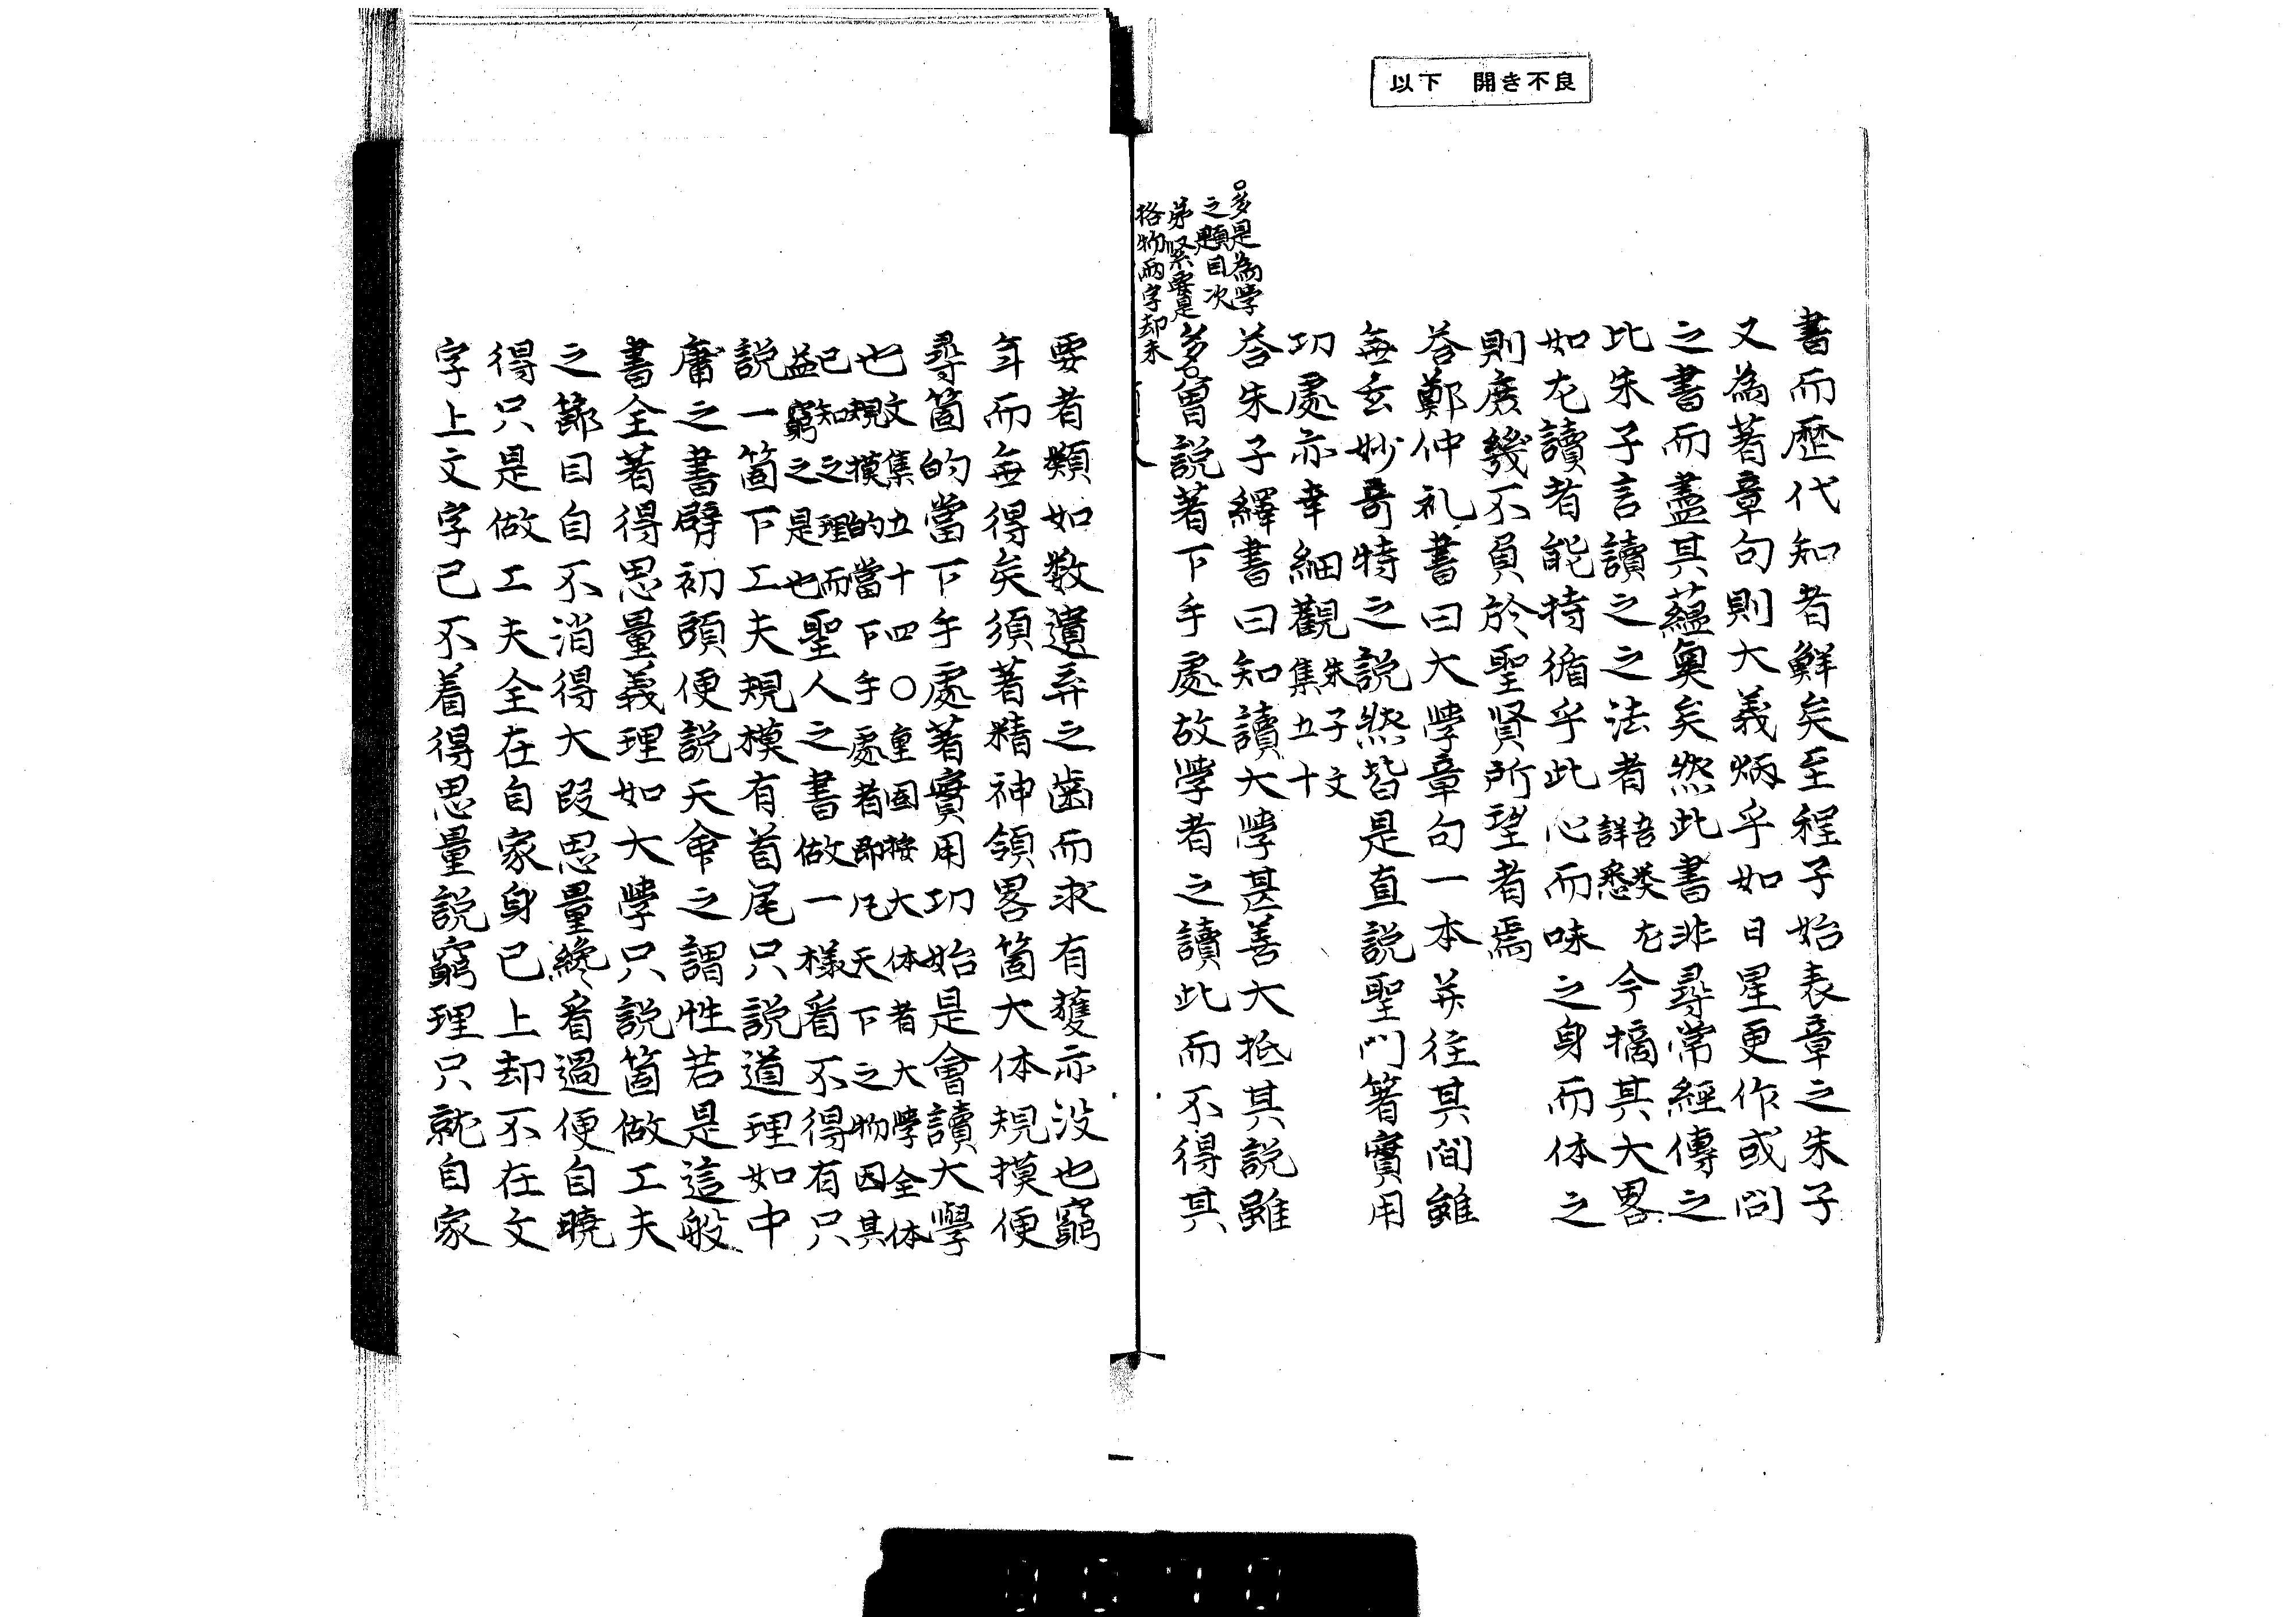 以下　開き不良
書而歴代知者鮮矣至程子始表章之朱子
又為著章句則大義炳乎如日星更作或問
之書而盡其蘊奥矣然此書非尋常經傳之
比朱子言讀之之法者詳悉左今摘其大畧
如左讀者能持循乎此心而味之身而体之
則庶幾不負於聖賢所望者焉
答鄭仲礼書曰大學章句一本并往其間雖
無玄妙奇特之説然皆是直説聖門著實用
功處亦幸細觀朱子文集五十
答朱子繹書曰知讀大學甚善大抵其説雖
多曾説著下手處故學者之讀此而不得其
○多是為學
之題目次
弟緊要是
格物兩字却未
要者類如数遺弃之齒而求有獲亦没也窮
年而無得矣須著精神領畧箇大体規摸便
尋箇的當下手處著實用功始是會讀大學
也文集五十四○重固按大体者大學全体
規摸的當下手處者即凡天下之物因其
已知之理而
益窮之是也聖人之書做一樣看不得有只
説一箇下工夫規模有首尾只説道理如中
庸之書劈初頭便説天命之謂性若是這般
書全著得思量義理如大學只説箇做工夫
之節目自不消得大段思量纔看過便自曉
得只是做工夫全在自家身已上却不在文
字上文字已不着得思量説窮理只就自家